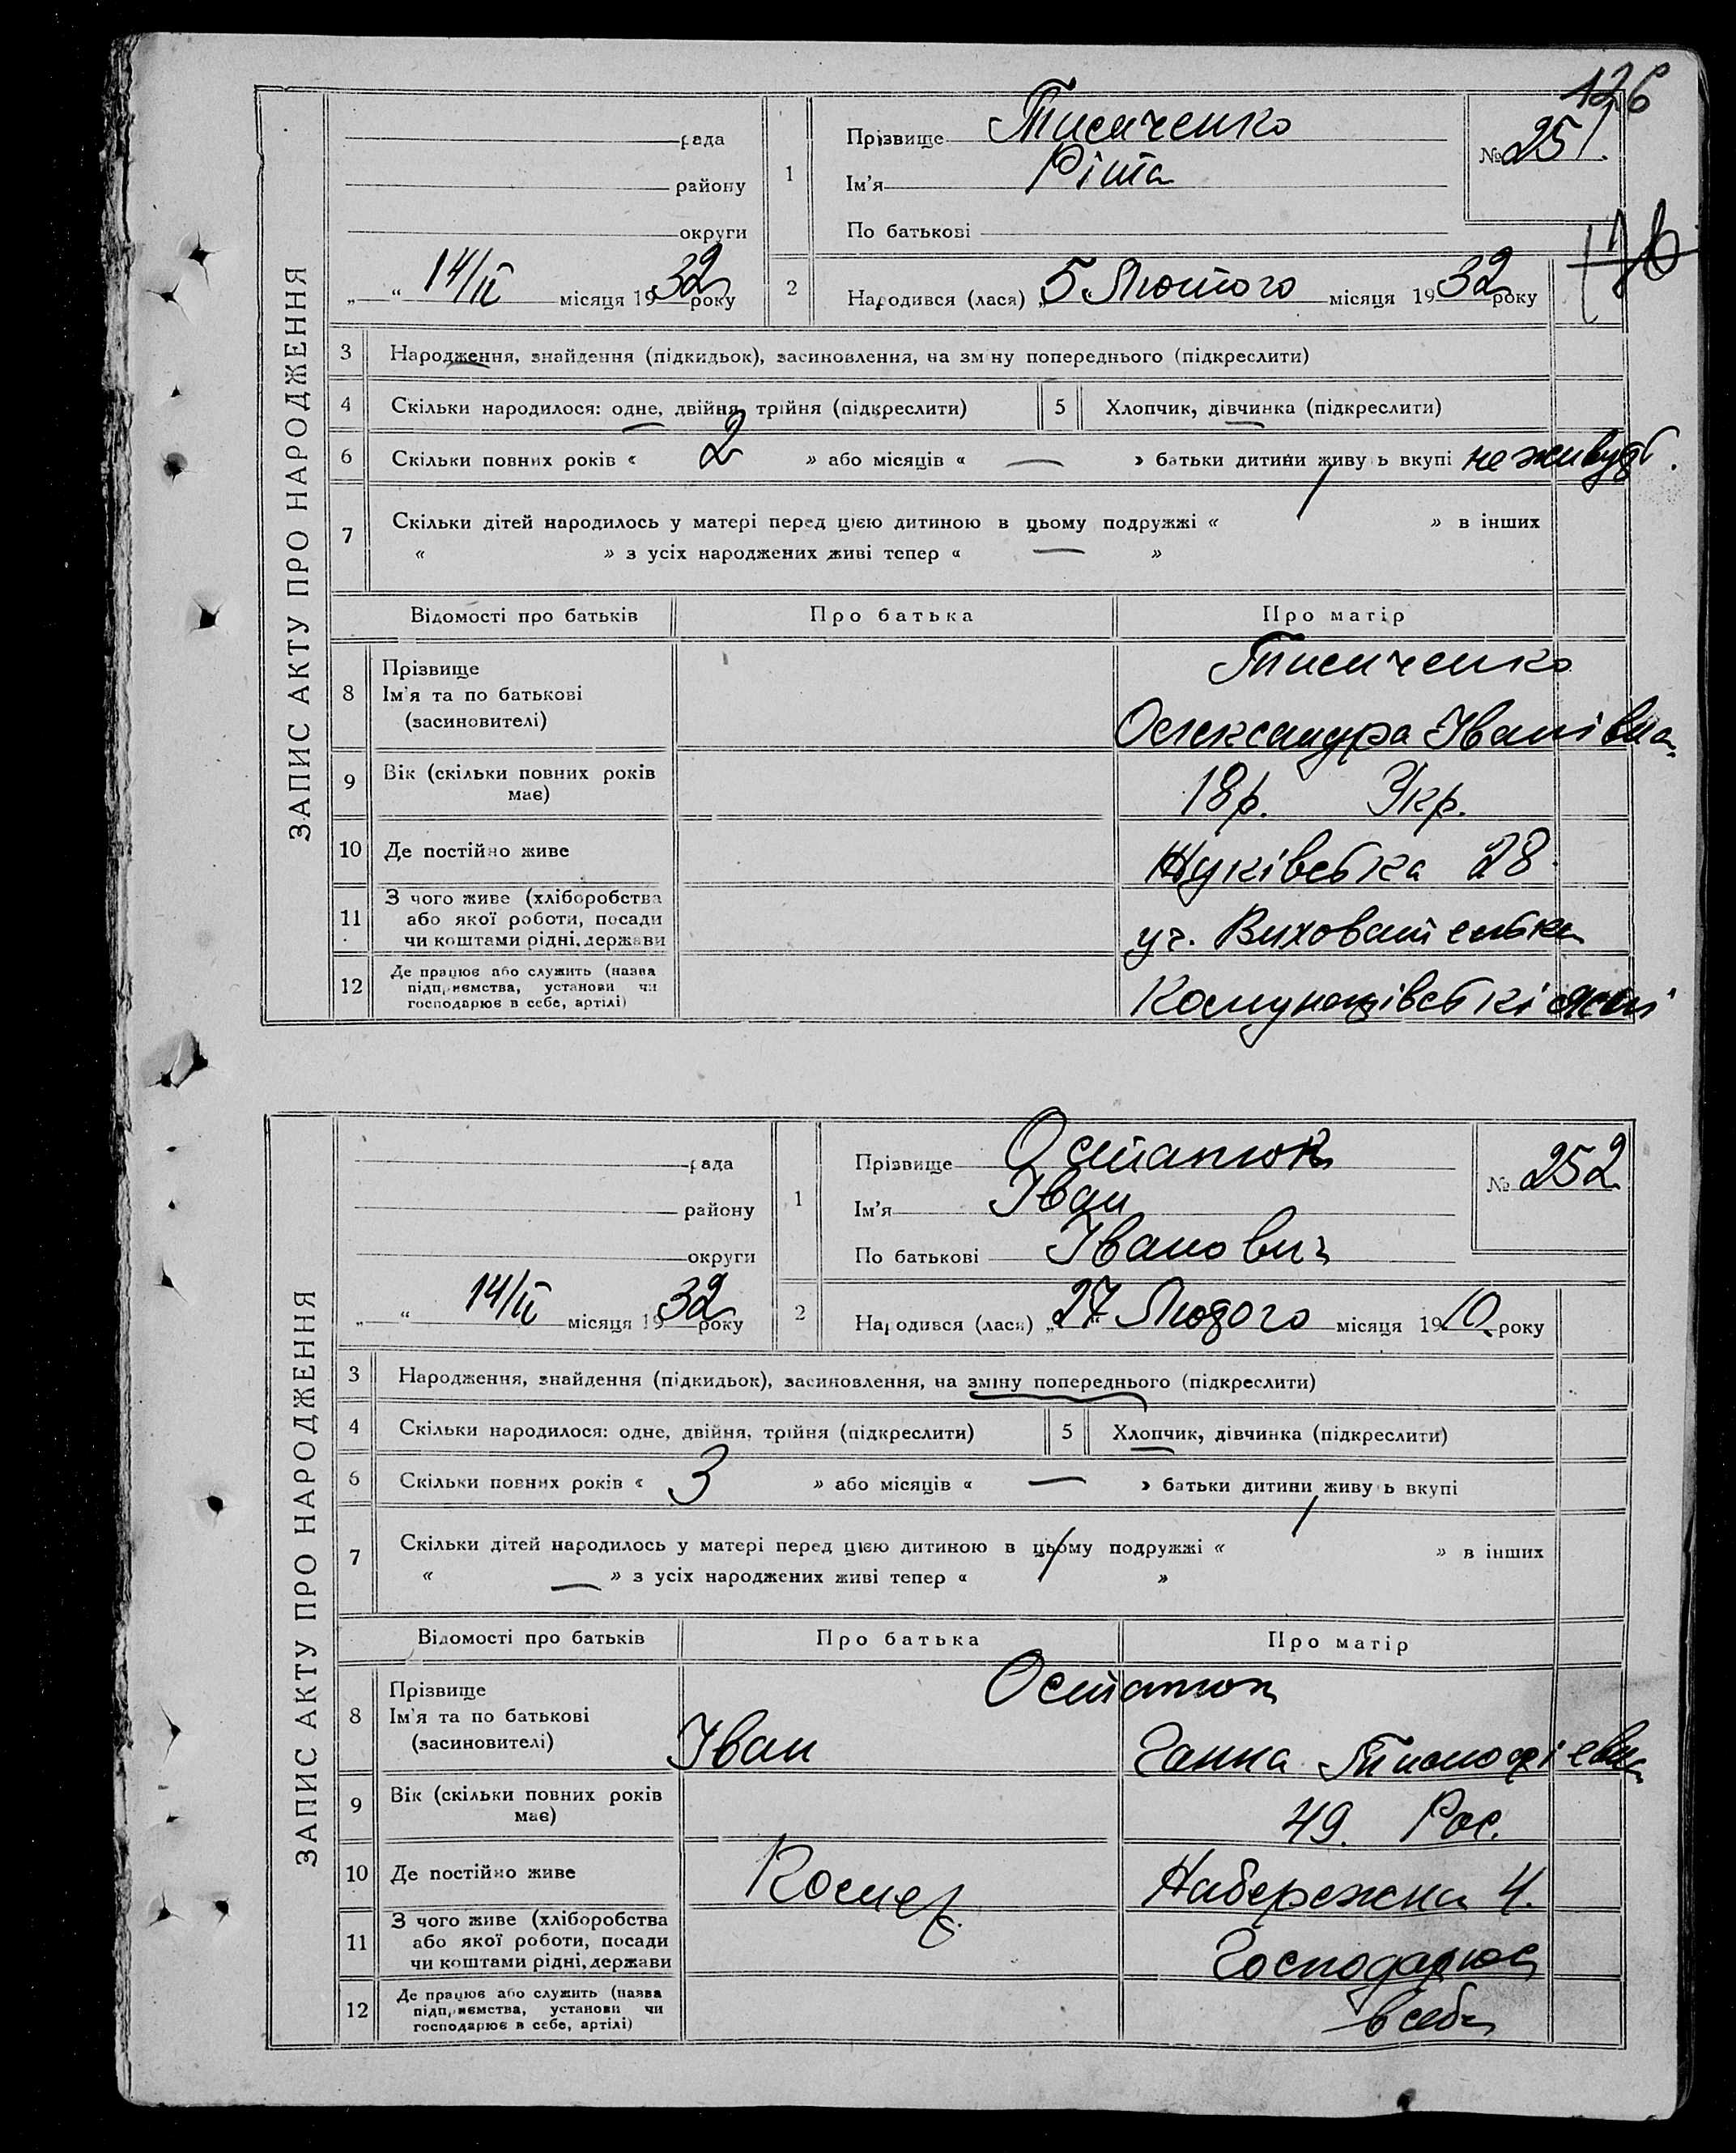 126
ЗАПИС АКТУ ПРО НАРОДЖЕННЯ
рада
району
округи
„ “ 14/II місяця 1932 року
1
Прізвище Тисяченко
Ім'я Ріта
По батькові
№ 251.
2
Народився (лася) „5 Лютого місяця 1932 року
3 Народження, знайдення (підкидьок), засиновлення, на зміну попереднього (підкреслити)
4 Скільки народилося: одне, двійня, трійня (підкреслити)
5 Хлопчик, дівчинка (підкреслити)
6 Скільки повних років « 2 » або місяців « — » батьки дитини живуть вкупі не живуть.
7 Скільки дітей народилось у матері перед цією дитиною в цьому подружжі « » в інших
« » з усіх народжених живі тепер « — »
Відомості про батьків Про батька Про матір
8 Прізвище
Ім'я та по батькові
(засиновителі)
Тисяченко
Олександра Іванівна
9 Вік (скільки повних років має)
18р. Укр.
10 Де постійно живе
28.
11 З чого живе (хліборобства
або якої роботи, посади
чи коштами рідні, держави
уч. Вихователька
12 Де працює або служить (назва
підприємства, установи чи
господарює в себе, артілі)
ЗАПИС АКТУ ПРО НАРОДЖЕННЯ
рада
району
округи
„ “ 14/II місяця 1932 року
1
Прізвище Остапюк
Ім'я Іван
По батькові Іванович
№ 252
2
Народився (лася) „27 Лютого місяця 1910 року
3 Народження, знайдення (підкидьок), засиновлення, на зміну попереднього (підкреслити)
4 Скільки народилося: одне, двійня, трійня (підкреслити)
5 Хлопчик, дівчинка (підкреслити)
6 Скільки повних років « 3 » або місяців « — » батьки дитини живуть вкупі
7 Скільки дітей народилось у матері перед цією дитиною в цьому подружжі « » в інших
« — » з усіх народжених живі тепер « »
Відомості про батьків Про батька Про матір
8 Прізвище
Ім'я та по батькові
(засиновителі)
Остапюк
Іван Ганна Тимофієвна
9 Вік (скільки повних років має)
49. Рос.
10 Де постійно живе
Набережна 4.
11 З чого живе (хліборобства
або якої роботи, посади
чи коштами рідні, держави
Господарює
12 Де працює або служить (назва
підприємства, установи чи
господарює в себе, артілі)
в себе